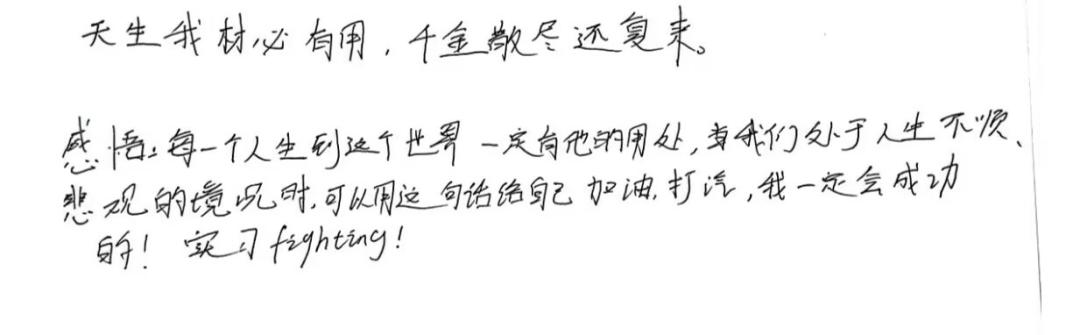 天生我材必有用，千金散尽还复来。
感悟：每一个人生到这个世界一定有他的用处，当我们处于人生不顺、
悲观的境况时，可以用这句话给自己加油，打汽，我一定会成功
的！实习fighting！